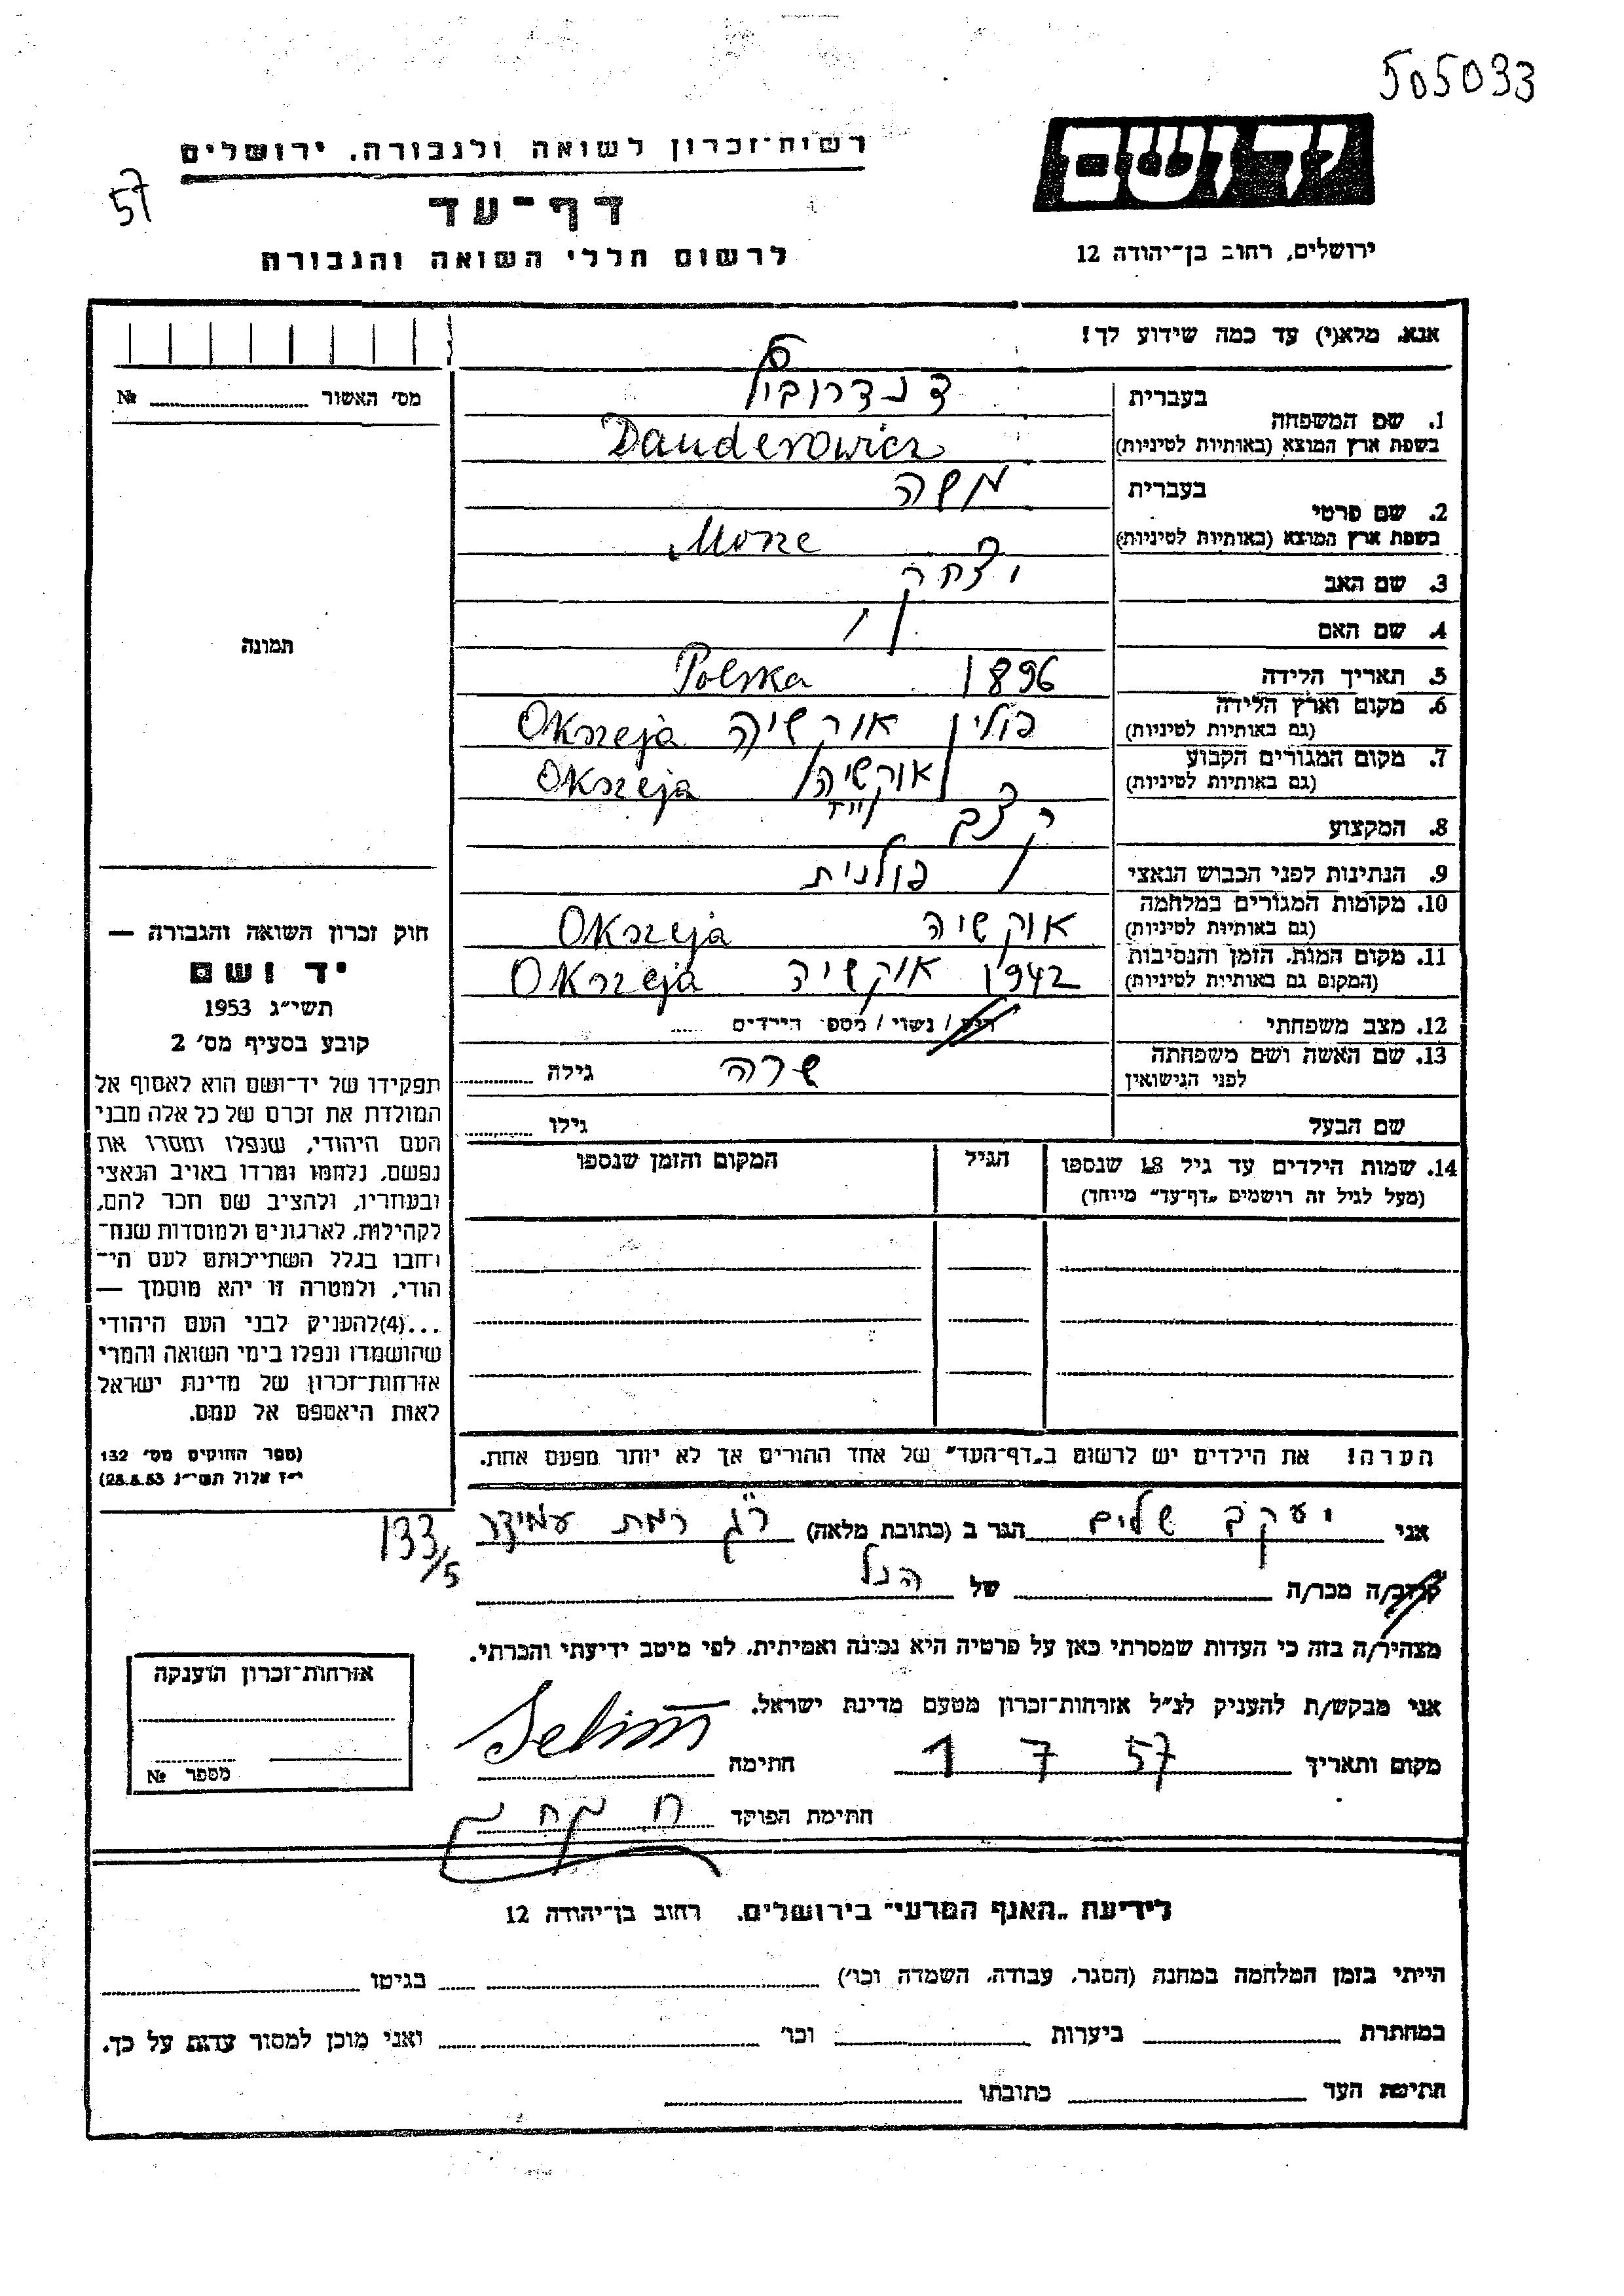 505033
יד ושם
רשות־זכרון לשואה ולגבורה, ירושלים
57
דף־עד
ירושלים, רחוב בן־יהודה 12
לרשום חללי השואה והגבורה
אנא, מלא(י) עד כמה שידוע לך!
מס׳ האשור № 
1. שם המשפחה
בעברית
בשפת ארץ המוצא (באותיות לטיניות)
Danderowicz
2. שם פרטי
בעברית משה
בשפת ארץ המוצא (באותיות לטיניות)
3. שם האב יצחק
4. שם האם /
תמונה
5. תאריך הלידה 1896 Polska
6. מקום וארץ הלידה
(גם באותיות לטיניות)
פולין אוקשיה Okszeja
7. מקום המגורים הקבוע
(גם באותיות לטיניות)
אוקשיה Okszeja
8. המקצוע קצב
9. הנתינות לפני הכבוש הנאצי פולנית
10. מקומות המגורים במלחמה
(גם באותיות לטיניות)
אוקשיה Okszeja
11. מקום המות, הזמן והנסיבות
(המקום גם באותיות לטיניות)
1942 אוקשיה Okszeja
12. מצב משפחתי / נשוי / מספר הילדים
13. שם האשה ושם משפחתה
לפני הנישואין
שרה גילה
שם הבעל גילו
14. שמות הילדים עד גיל 18 שנספו
(מעל לגיל זה רושמים „דף־עד” מיוחד)
הגיל
המקום והזמן שנספו
חוק זכרון השואה והגבורה —
יד ושם
תשי״ג 1953
קובע בסעיף מס׳ 2
תפקידו של יד־ושם הוא לאסוף אל
המולדת את זכרם של כל אלה מבני
העם היהודי, שנפלו ומסרו את
נפשם, נלחמו ומרדו באויב הנאצי
ובעוזריו, ולהציב שם וזכר להם,
לקהילות, לארגונים ולמוסדות שנח־
רבו בגלל השתייכותם לעם הי־
הודי, ולמטרה זו יהא מוסמך —
...(4)להעניק לבני העם היהודי
שהושמדו ונפלו בימי השואה והמרי
אזרחות־זכרון של מדינת ישראל
לאות היאספם אל עמם.
(ספר החוקים מס׳ 132
י״ז אלול תשי״ג 28.8.53)
הערה! את הילדים יש לרשום ב„דף־העד” של אחד ההורים אך לא יותר מפעם אחת.
אני יעקב שלים הגר ב (כתובת מלאה) ר״ג רמת עמידר 133/5
קרוב/ה מכר/ה של הנ״ל
מצהיר/ה בזה כי העדות שמסרתי כאן על פרטיה היא נכונה ואמיתית, לפי מיטב ידיעתי והכרתי.
אני מבקש/ת להעניק לנ״ל אזרחות־זכרון מטעם מדינת ישראל.
מקום ותאריך 1 7 57 חתימה
חתימת הפוקד
אזרחות־זכרון הוענקה
מספר №
לידיעת „האגף המדעי” בירושלים, רחוב בן־יהודה 12
הייתי בזמן המלחמה במחנה (הסגר, עבודה, השמדה וכו׳) בגיטו
במחתרת ביערות וכו׳ ואני מוכן למסור עדות על כך.
חתימת העד כתובתו